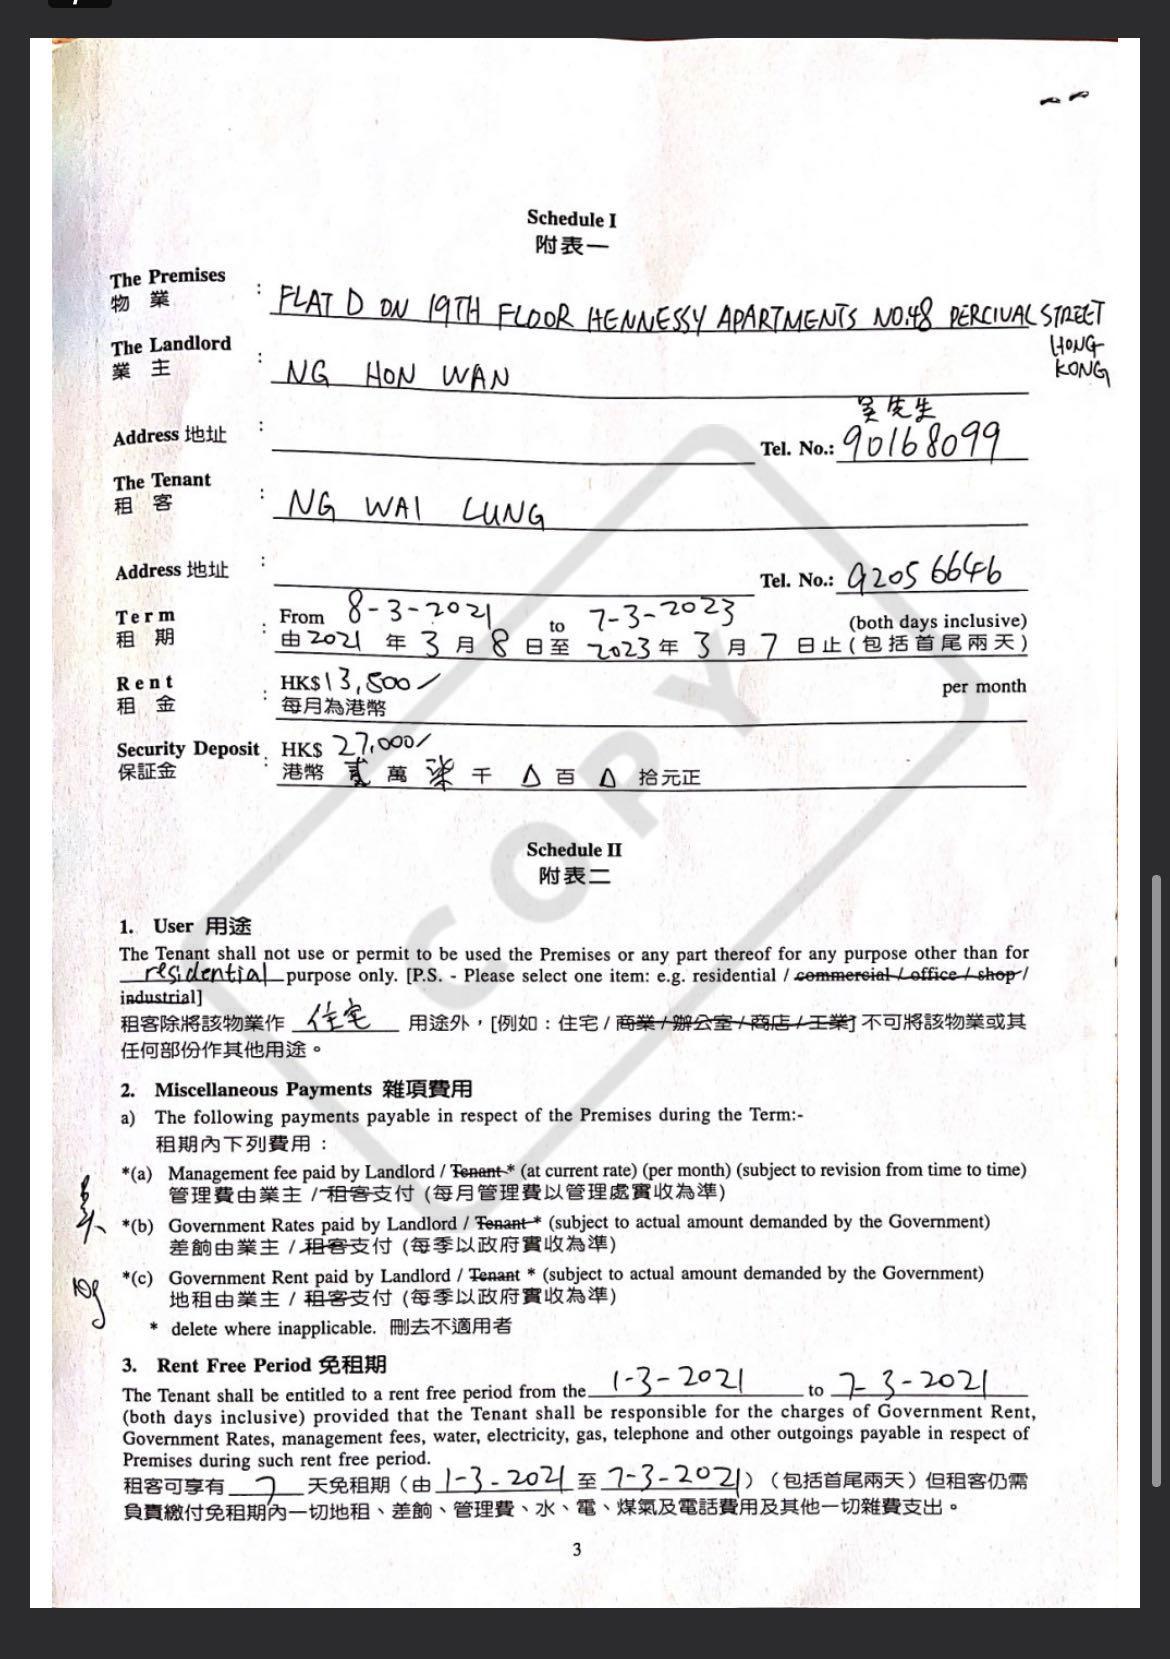 Schedule I
附表一
The Premises
物 業 : FLAT D ON 19TH FLOOR HENNESSY APARTMENTS NO.48 PERCIVAL STREET
HONG
KONG
The Landlord
業 主 : NG HON WAN
吴先生
Address 地址 : Tel. No.: 90168099
The Tenant
租 客 : NG WAI LUNG
Address 地址 : Tel. No.: 9205 6646
Term From 8-3-2021 to 7-3-2023 (both days inclusive)
租 期 : 由 2021 年 3 月 8 日至 2023 年 3 月 7 日止 (包括首尾兩天)
Rent HK$ 13,500/ per month
租 金 : 每月為港幣
Security Deposit HK$ 27,000/
保証金 : 港幣 貳 萬 柒 千 △ 百 △ 拾元正
Schedule II
附表二
1. User 用途
The Tenant shall not use or permit to be used the Premises or any part thereof for any purpose other than for
residential purpose only. [P.S. - Please select one item: e.g. residential / commercial / office / shop /
industrial]
租客除將該物業作 住宅 用途外，[例如：住宅 / 商業 / 辦公室 / 商店 / 工業] 不可將該物業或其
任何部份作其他用途。
2. Miscellaneous Payments 雜項費用
a) The following payments payable in respect of the Premises during the Term:-
租期內下列費用：
*(a) Management fee paid by Landlord / Tenant * (at current rate) (per month) (subject to revision from time to time)
管理費由業主 / 租客支付 (每月管理費以管理處實收為準)
*(b) Government Rates paid by Landlord / Tenant * (subject to actual amount demanded by the Government)
差餉由業主 / 租客支付 (每季以政府實收為準)
*(c) Government Rent paid by Landlord / Tenant * (subject to actual amount demanded by the Government)
地租由業主 / 租客支付 (每季以政府實收為準)
* delete where inapplicable. 刪去不適用者
3. Rent Free Period 免租期
The Tenant shall be entitled to a rent free period from the 1-3-2021 to 7-3-2021
(both days inclusive) provided that the Tenant shall be responsible for the charges of Government Rent,
Government Rates, management fees, water, electricity, gas, telephone and other outgoings payable in respect of
Premises during such rent free period.
租客可享有 7 天免租期（由 1-3-2021 至 7-3-2021）（包括首尾兩天）但租客仍需
負責繳付免租期內一切地租、差餉、管理費、水、電、煤氣及電話費用及其他一切雜費支出。
3
COPY